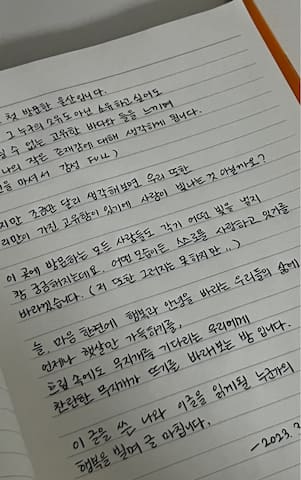 첫 방문한 울산입니다.
그 누구의 소유도 아닌 소유하고 싶어도
수 없는 고유한 바다와 돌을 느끼며
나의 작은 존재감에 대해 생각하게 됩니다.
마셔서 감성 FULL)
조금만 달리 생각해보면 우리 또한
가진 고유함이 있기에 사랑이 빛나는 것 아닐까요?
이 곳에 방문하는 모든 사람들도 각기 어떤 빛을 낼지
참 궁금해지는데요. 어떤 모습이든 스스로를 사랑하고 있기를
바라겠습니다. (저 또한 그러지는 못하지만..)
늘, 마음 한편에 행복과 안녕을 바라는 우리들의 삶에
언제나 햇살만 가득하기를,
흐림 속에도 무지개를 기다리는 우리에게
찬란한 무지개가 뜨기를, 바래보는 밤 입니다.
이 글을 쓴 나와 이글을 읽게될 누군가의
행복을 빌며 글 마칩니다.
-2023. 3